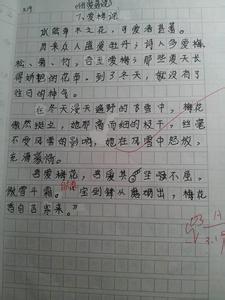 (仿爱莲说)
7、爱梅说
武陆草木之花,可爱者甚蕃。
自来众人温爱牡丹;诗人多爱梅、
松、菊、竹,余立爱梅;那些夏天长
得娇艳的花草,到了冬天,就没有了
往日的神气。
在冬天漫天遍野的飞雪中,梅花
傲然挺立,她那高而细的枝干,丝毫
不受风雪的影响,她在风雪中怒放,
充满豪情。
吾爱梅花,吾爱其坚强不屈,
傲雪斗霜。
宝剑锋从磨砺出,梅花
香自苦寒来。”